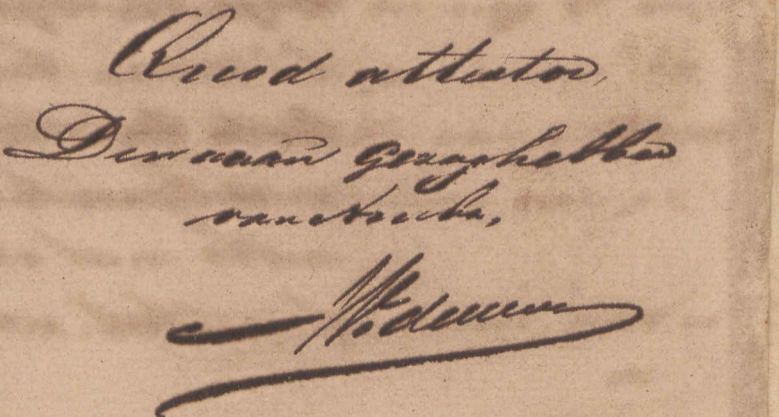 Quod attestor,
De waarn Gezaghebber
van Aruba,